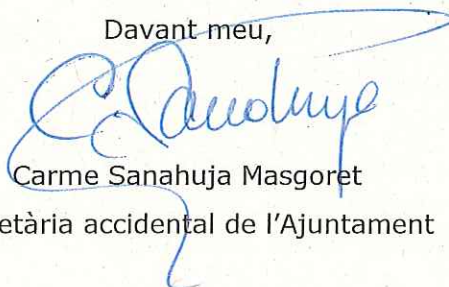 Davant meu,
C. Sanahuja
Carme Sanahuja Masgoret
etària accidental de l'Ajuntament